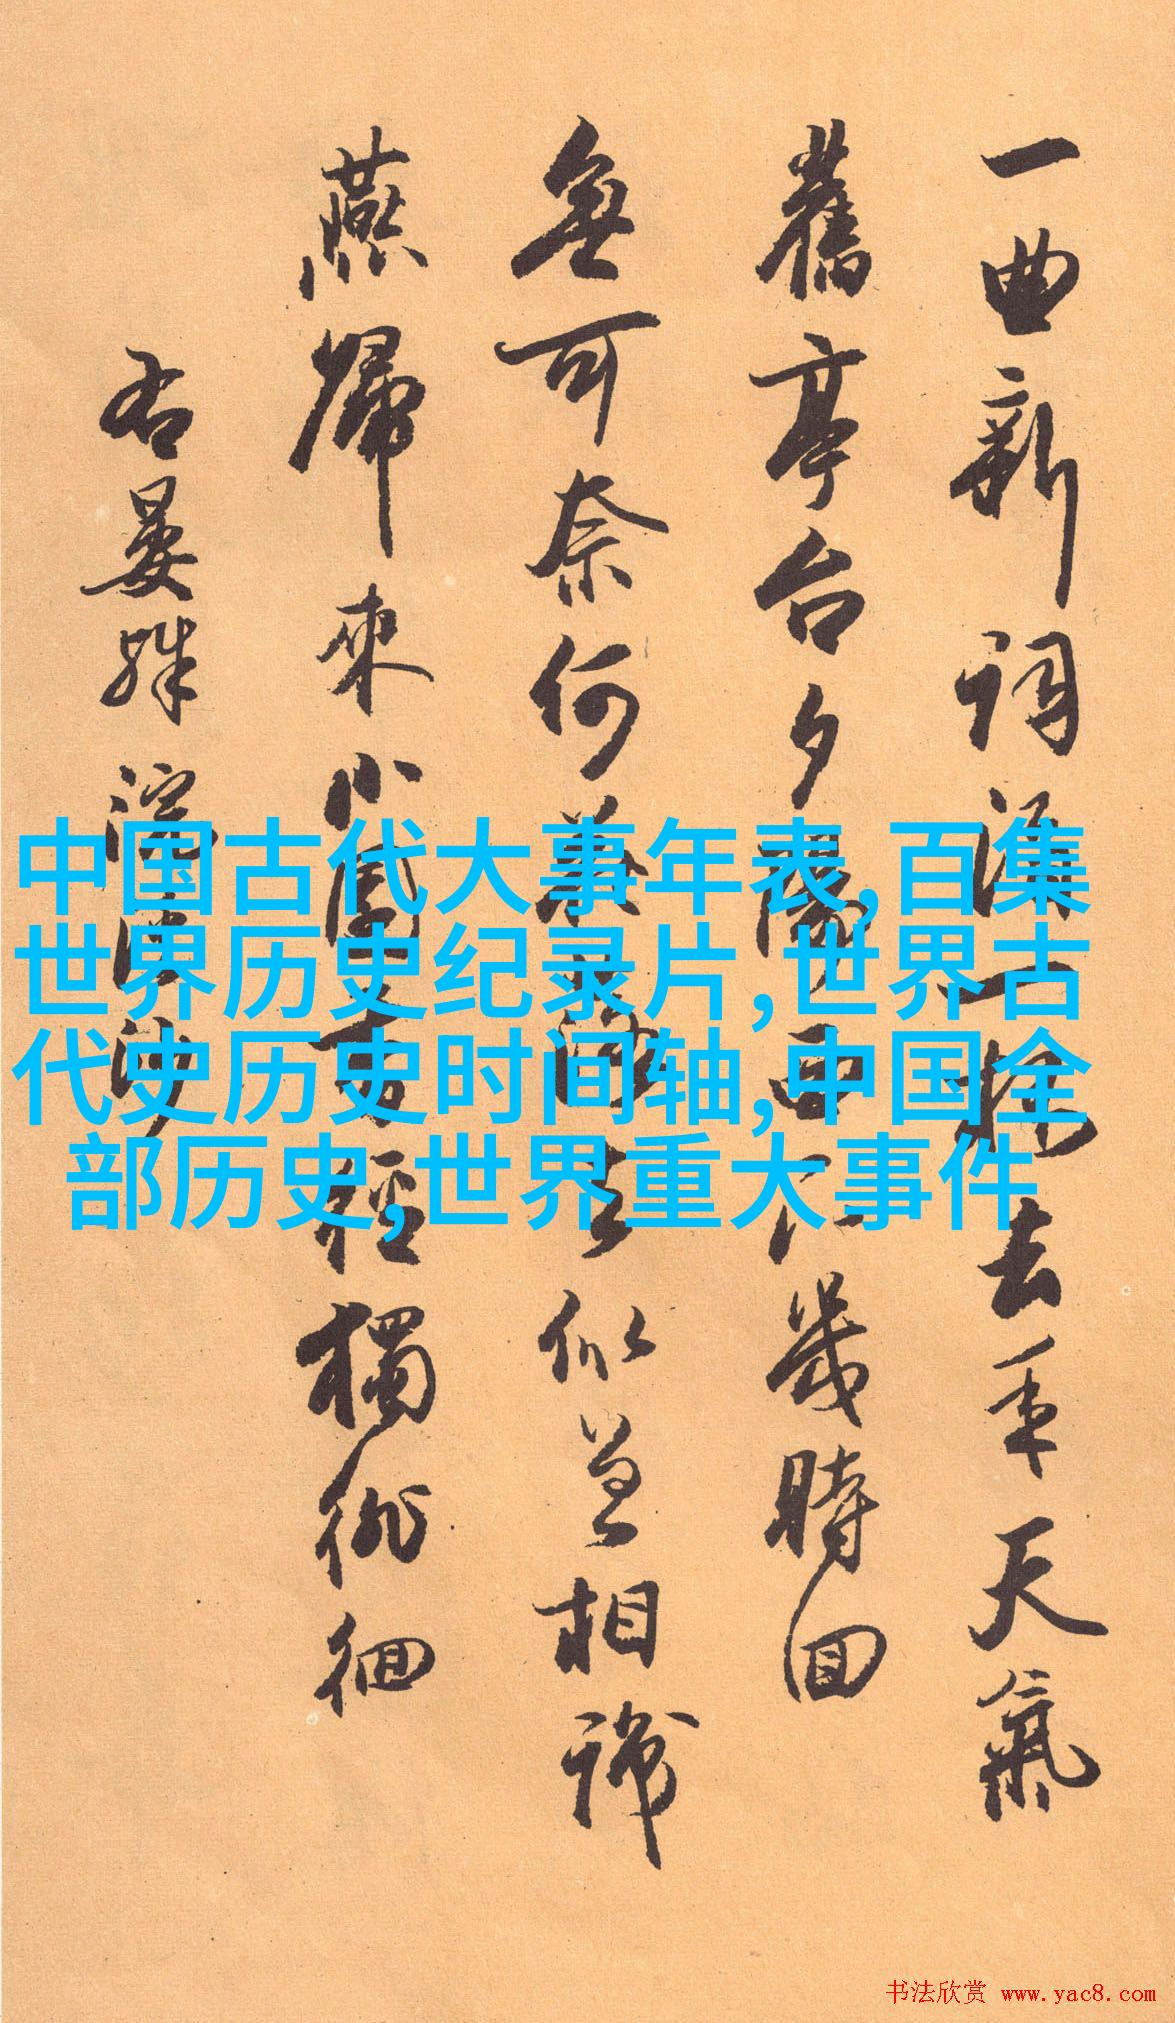 一曲新詞酒一杯去年天氣
舊亭台夕陽西下幾時回
無可奈何花落去似曾相識
燕歸來小園香徑獨徘徊
右晏殊浣溪沙
中国古代大事年表,百集
世界历史纪录片,世界古
代史历史时间轴,中国全
部历史,世界重大事件
书法欣赏 www.yac8.com